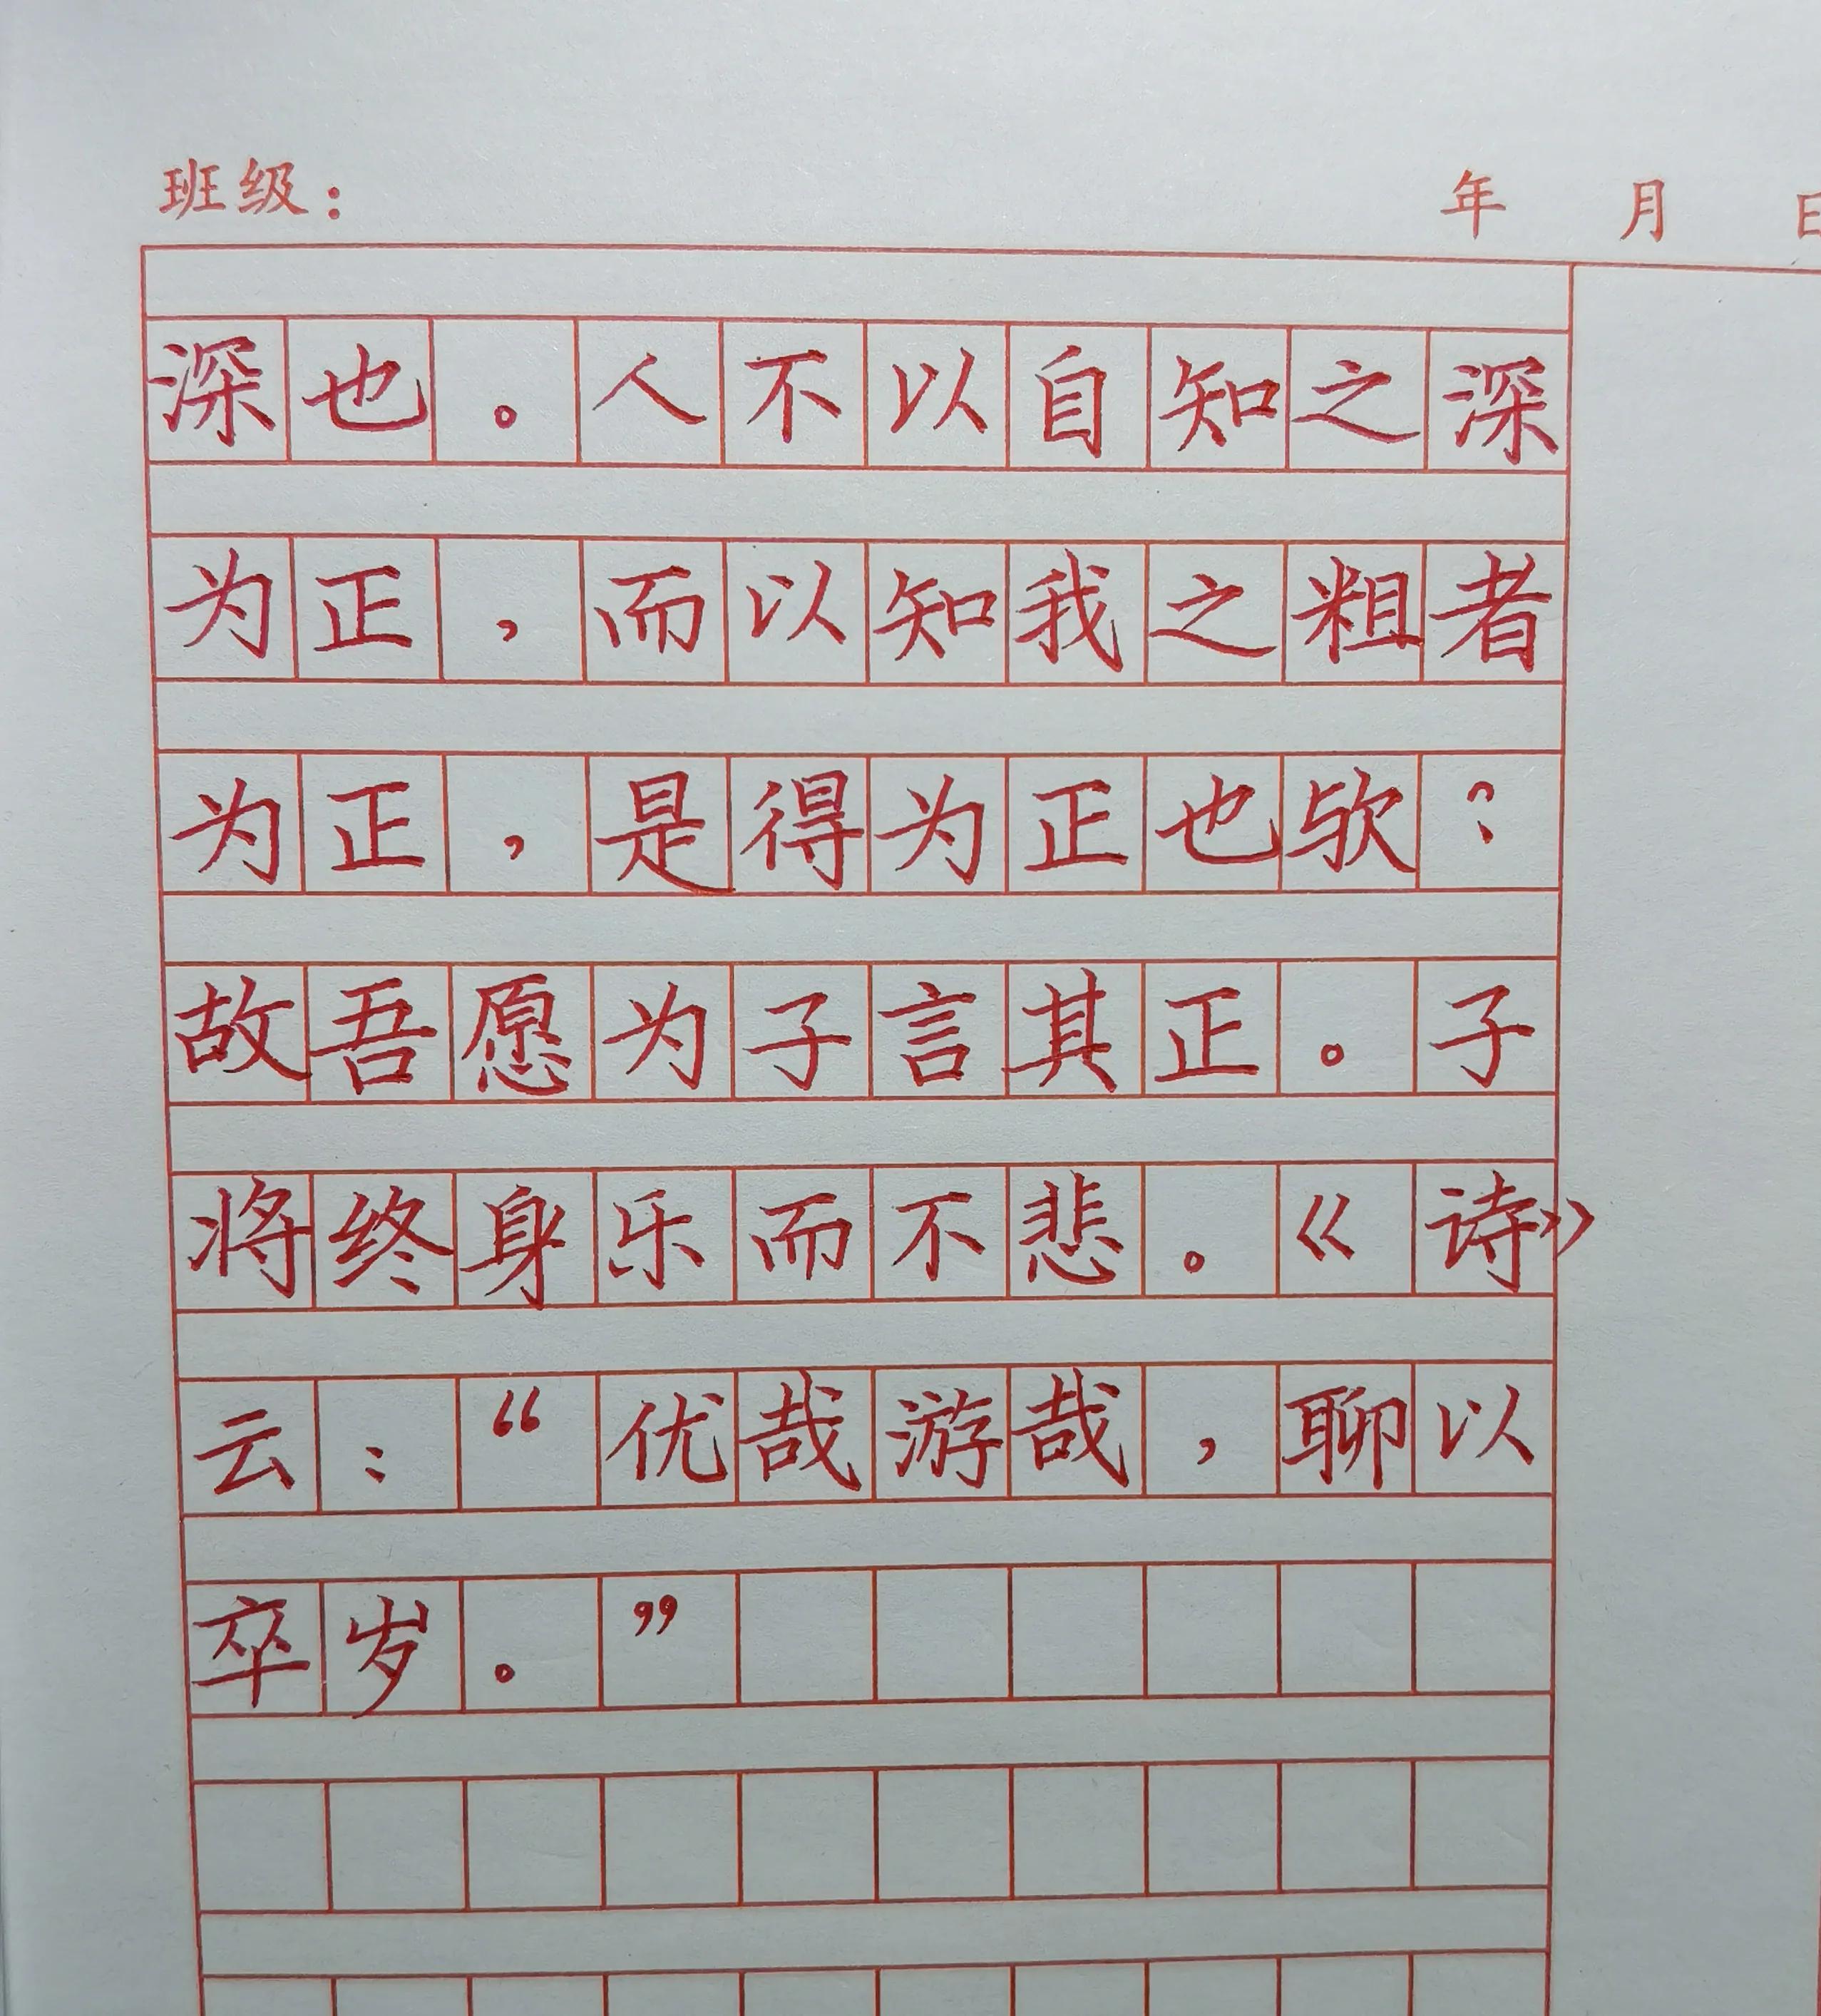 班级： 年 月 日
深也。人不以自知之深
为正，而以知我之粗者
为正，是得为正也欤？
故吾愿为子言其正。子
将终身乐而不悲。《诗》
云：“优哉游哉，聊以
卒岁。”